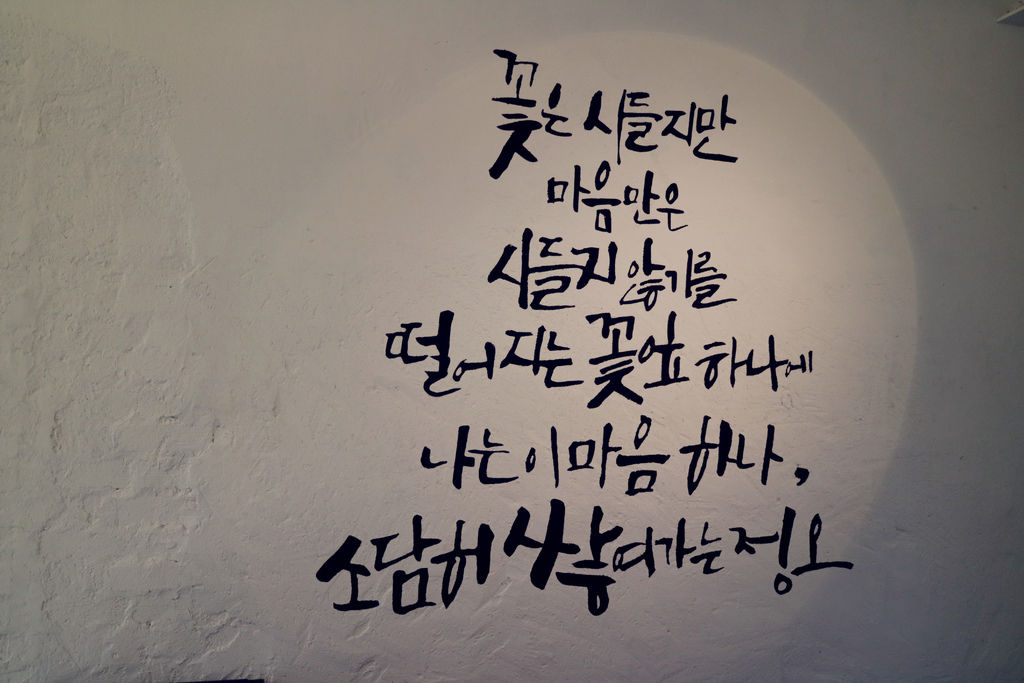 꽃은 시들지만
마음만은
시들지 않기를
떨어지는 꽃잎 하나에
나는 이 마음 하나,
소담히 정오